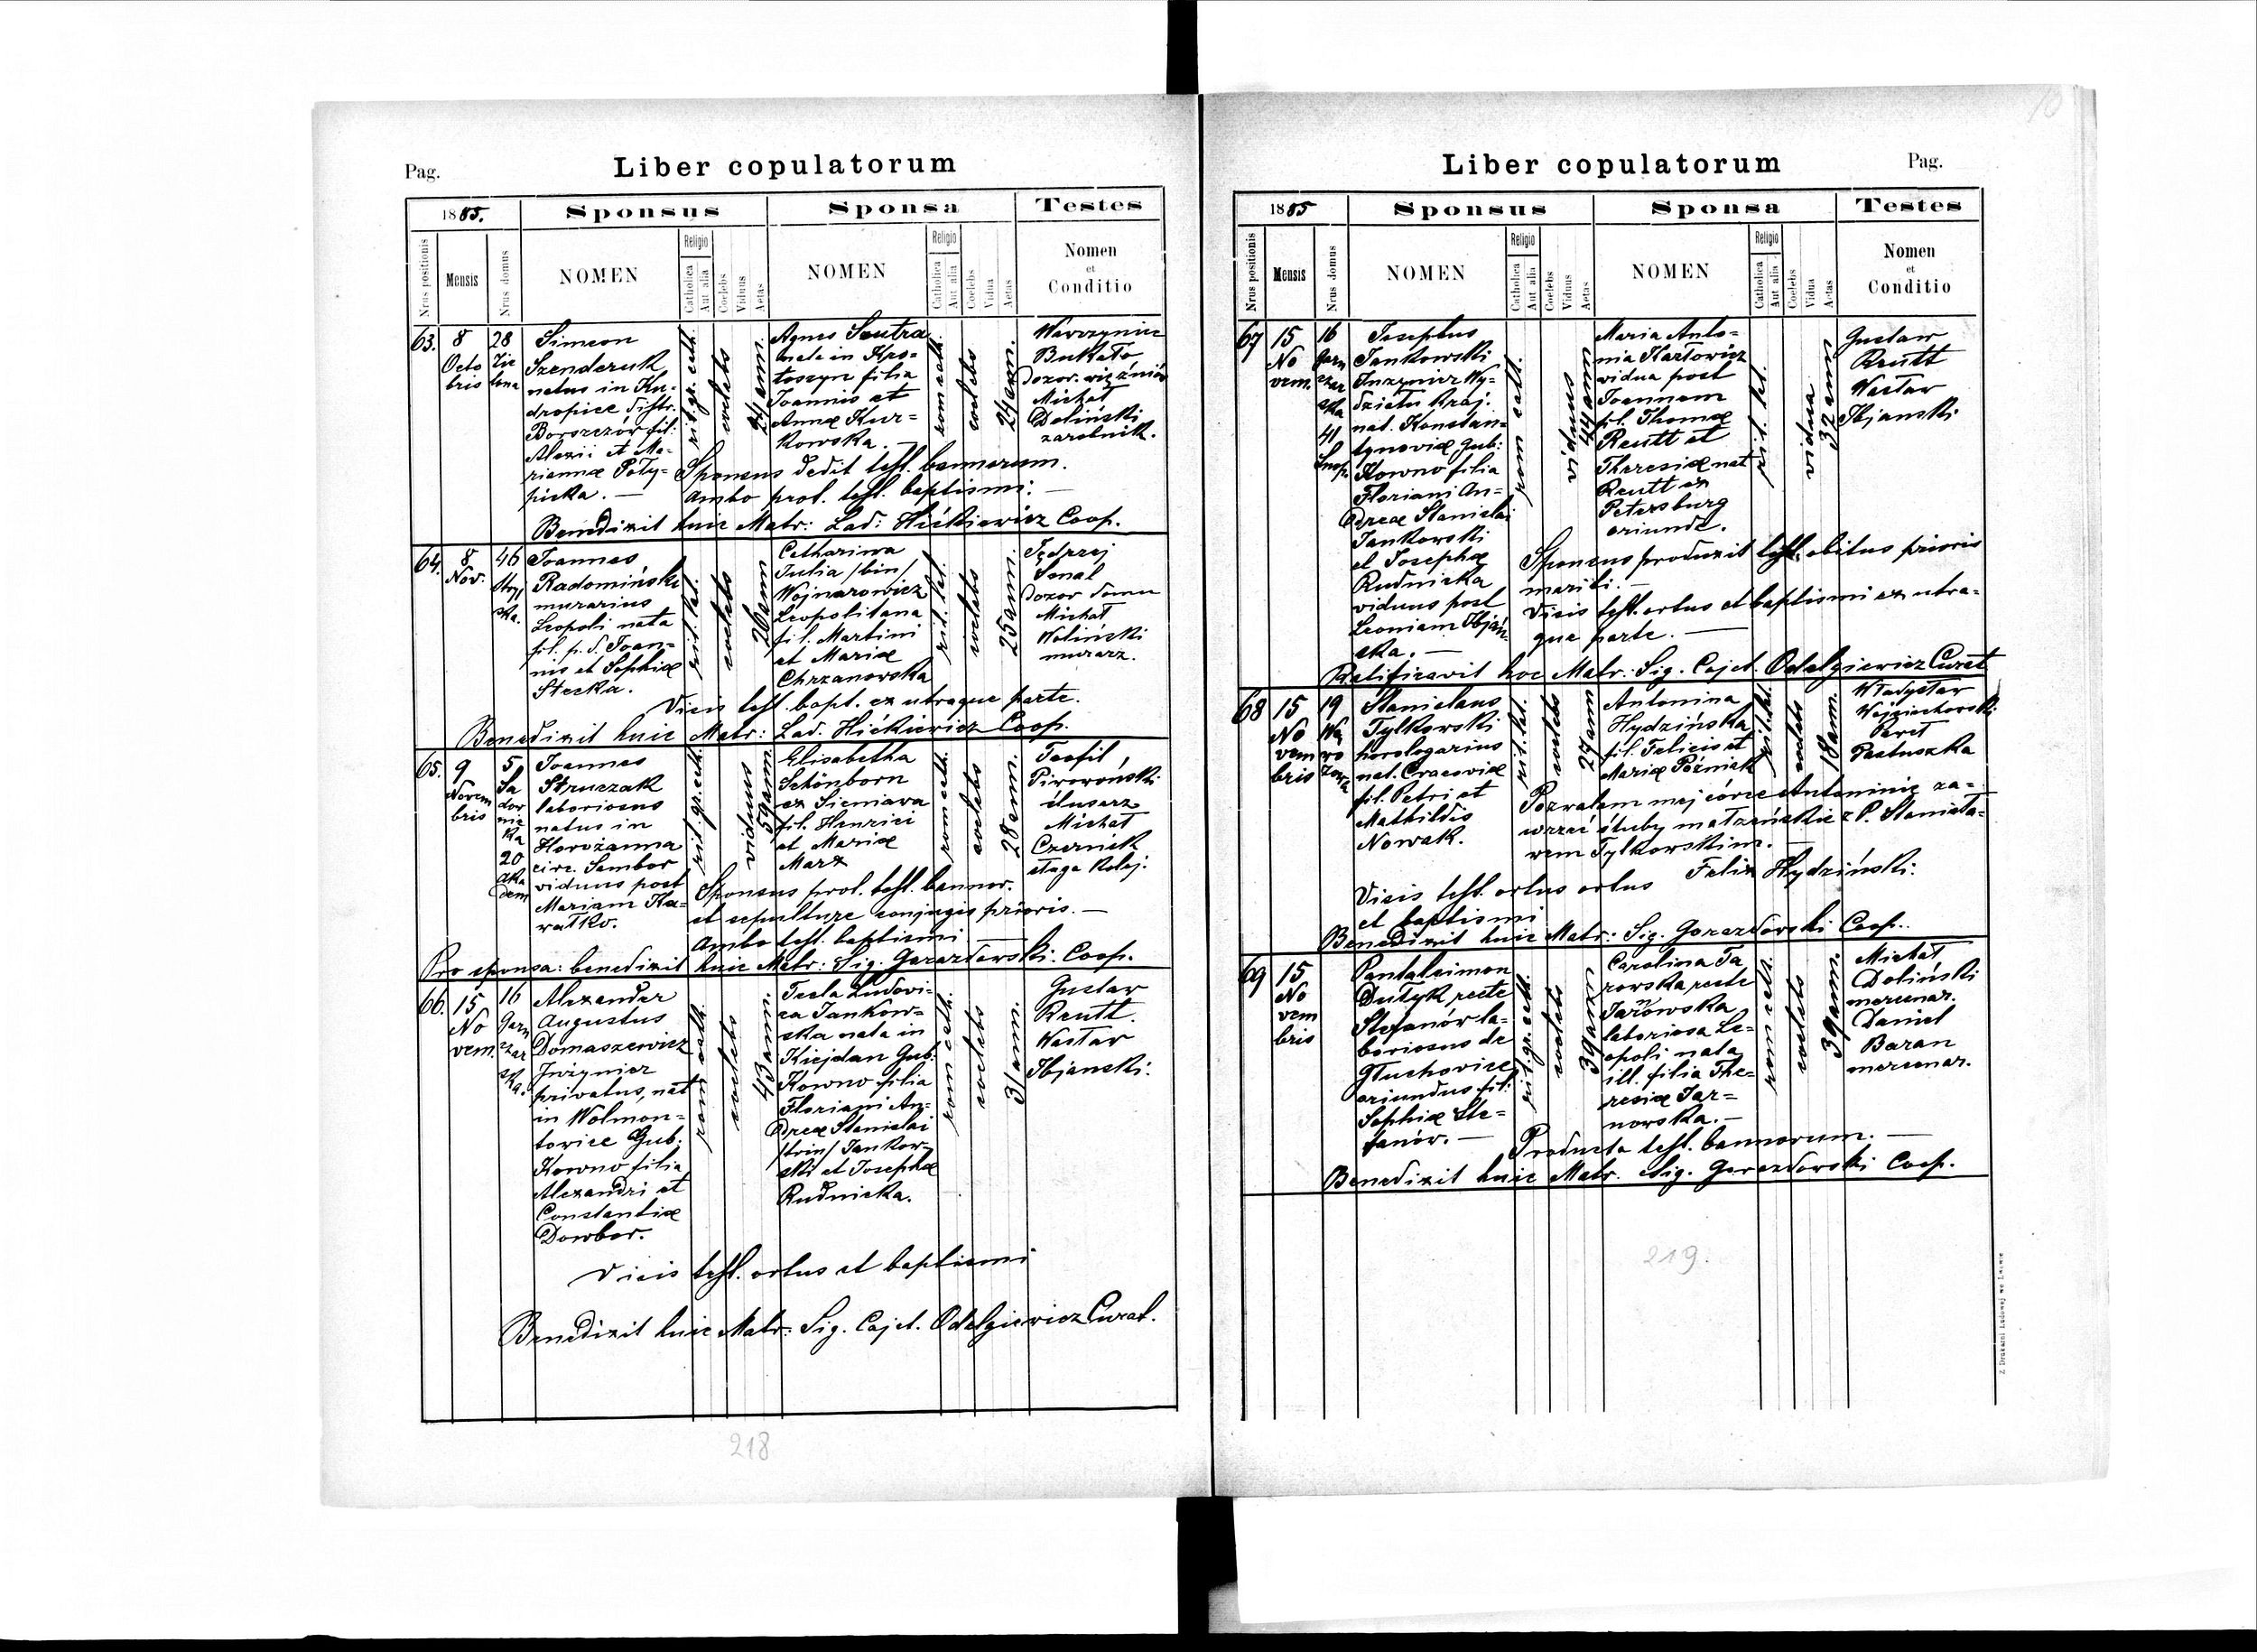 Pag.
Liber copulatorum
1885.
Sponsus
Sponsa
Testes
Nrus positionis
Mensis
Nrus domus
NOMEN
Religio
Catholica
Aut alia
Coelebs
Viduus
Aetas
NOMEN
Religio
Catholica
Aut alia
Coelebs
Vidua
Aetas
Nomen
et
Conditio
63.
8
Octo
bris
28
Zie
lona
Simeon
Szenderuk
natus in Ku-
dropice distr.
Borszczów fil:
Alexii et Ma-
riannæ Poty-
picka. —
rit. gr. cath.
coelebs
24 ann.
Agnes
nata in Kro-
toszyn filia
Joannis et
Annæ Kur-
kowska. —
rom cath.
coelebs
24 ann.
Wawrzyniec
Bukało
Dozor. więźniów
Michał
Doliński
zarobnik.
Sponsus dedit test. bannorum.
Ambo prod. test. baptismi. —
Benedixit huic Matr: Lad: Hićkiewicz Coop.
64.
8
Nov.
46
Stryj
ska.
Joannes
Radomiński
murarius
Leopoli nata
fil. p. d. Joan-
nis et Sophiæ
Stecka.
rit. lat.
coelebs
26 ann
Catharina
Julia /bin/
Wojnarowicz
Leopolitana
fil. Martini
et Mariæ
Chrzanowska
rit. lat.
coelebs
25 ann.
Jędrzej
Senal
Dozor domu
Michał
Woliński
murarz.
Visis test. bapt. ex utraque parte.
Benedixit huic Matr: Lad. Hićkiewicz Coop.
65.
9
Novem
bris
5
Sa
dow
nic
ka
20
Aka
dem
Joannes
Struczak
laboriosus
natus in
Horożanna
circ. Sambor
viduus post
Mariam Ka-
ratko.
rit. gr. cath.
viduus
59 ann.
Elisabetha
Schönborn
ex Sieniava
fil. Henrici
et Mariæ
Marx
rom cath.
coelebs
28 ann.
Teofil
Piworoński
ślusarz
Michał
Czernick
sługa kolej.
Sponsus prod. test. bannor.
et sepulturæ conjugis prioris. —
Ambo test. baptismi —
Pro sponsa: benedixit huic Matr: Sig. Gorazdowski. Coop.
66.
15
No
vem.
16
Garn
czar
ska.
Alexander
Augustus
Domaszewicz
Inżynier
privatus, nat
in Wolmon-
towice Gub:
Kowno filia
Alexandri et
Constantiæ
Dowbor.
rom cath.
coelebs
43 ann.
Tecla Ludovi-
ca Jankow-
ska nata in
Kiejdan Gub.
Kowno filia
Floriani An-
dreæ Stanislai
/trin/ Jankow-
ski et Josephæ
Rudnicka.
rom cath.
coelebs
31 ann.
Gustaw
Reutt.
Wacław
Zbjanski.
Visis test. ortus et baptismi
Benedixit huic Matr: Sig. Cajet. Odelgiewicz Curat.
218
10
Liber copulatorum
Pag.
1885
Sponsus
Sponsa
Testes
Nrus positionis
Mensis
Nrus domus
NOMEN
Religio
Catholica
Aut alia
Coelebs
Viduus
Aetas
NOMEN
Religio
Catholica
Aut alia
Coelebs
Vidua
Aetas
Nomen
et
Conditio
67
15
No
vem.
16
Garn
czar
ska
41
Josephus
Jankowski
Inżynier Wy-
działu Kraj.
nat. Konstan-
tynoviæ Gub:
Kowno filia
Floriani An-
dreæ Stanislai
Jankowski
et Josephæ
Rudnicka
viduus post
Leoniam Zbjań-
ska. —
rom cath.
viduus
44 ann
Maria Anto-
nia Karłowicz
vidua post
Joannem
fil. Thomæ
Reutt et
Theresiæ nat
Reutt ex
Petersburg
oriunda.
rit. lat.
vidua
32 ann
Gustaw
Reutt
Wacław
Zbjanski
Sponsus produxit test. obitus prioris
mariti. —
Visis test. ortus et baptismi ex utra-
que parte. —
Ratificavit hoc Matr: Sig. Cajet. Odelgiewicz Curat
68
15
No
vem
bris
19
Wa
wo
Stanislaus
Tylkowski
horologarius
nat. Cracoviæ
fil. Petri et
Mathildis
Nowak.
rit. lat.
coelebs
27 ann
Antonina
Hydzińska
fil. Felicis et
Mariæ Poźniak
rit. lat.
coelebs
18 ann.
Władysław
Wojciechowski
Paweł
Pastuszka
Pozwalam mej córce Antoninie za-
wrzeć śluby małżeńskie z P. Stanisła-
wem Tylkowskim. —
Felix Hydziński.
Visis test. ortus ortus
et baptismi
Benedixit huic Matr: Sig. Gorazdowski Coop.
69
15
No
vem
bris
Pantaleimon
Dutyk recte
Stefanów la-
boriosus de
Głuchovice
oriundus fil:
Sophiæ Ste-
fanów. —
rit. gr. cath.
coelebs
39 ann
Carolina Ta
rowska recte
Jarowska
laboriosa Le-
opoli nata
ill. filia The-
resiæ Jar-
nowska. —
rom cath.
coelebs
39 ann.
Michał
Doliński
mercenar.
Daniel
Baran
mercenar.
Producta test. bannorum. —
Benedixit huic Matr. Sig. Gorazdowski Coop.
219.
Z Drukarni Ludowej we Lwowie